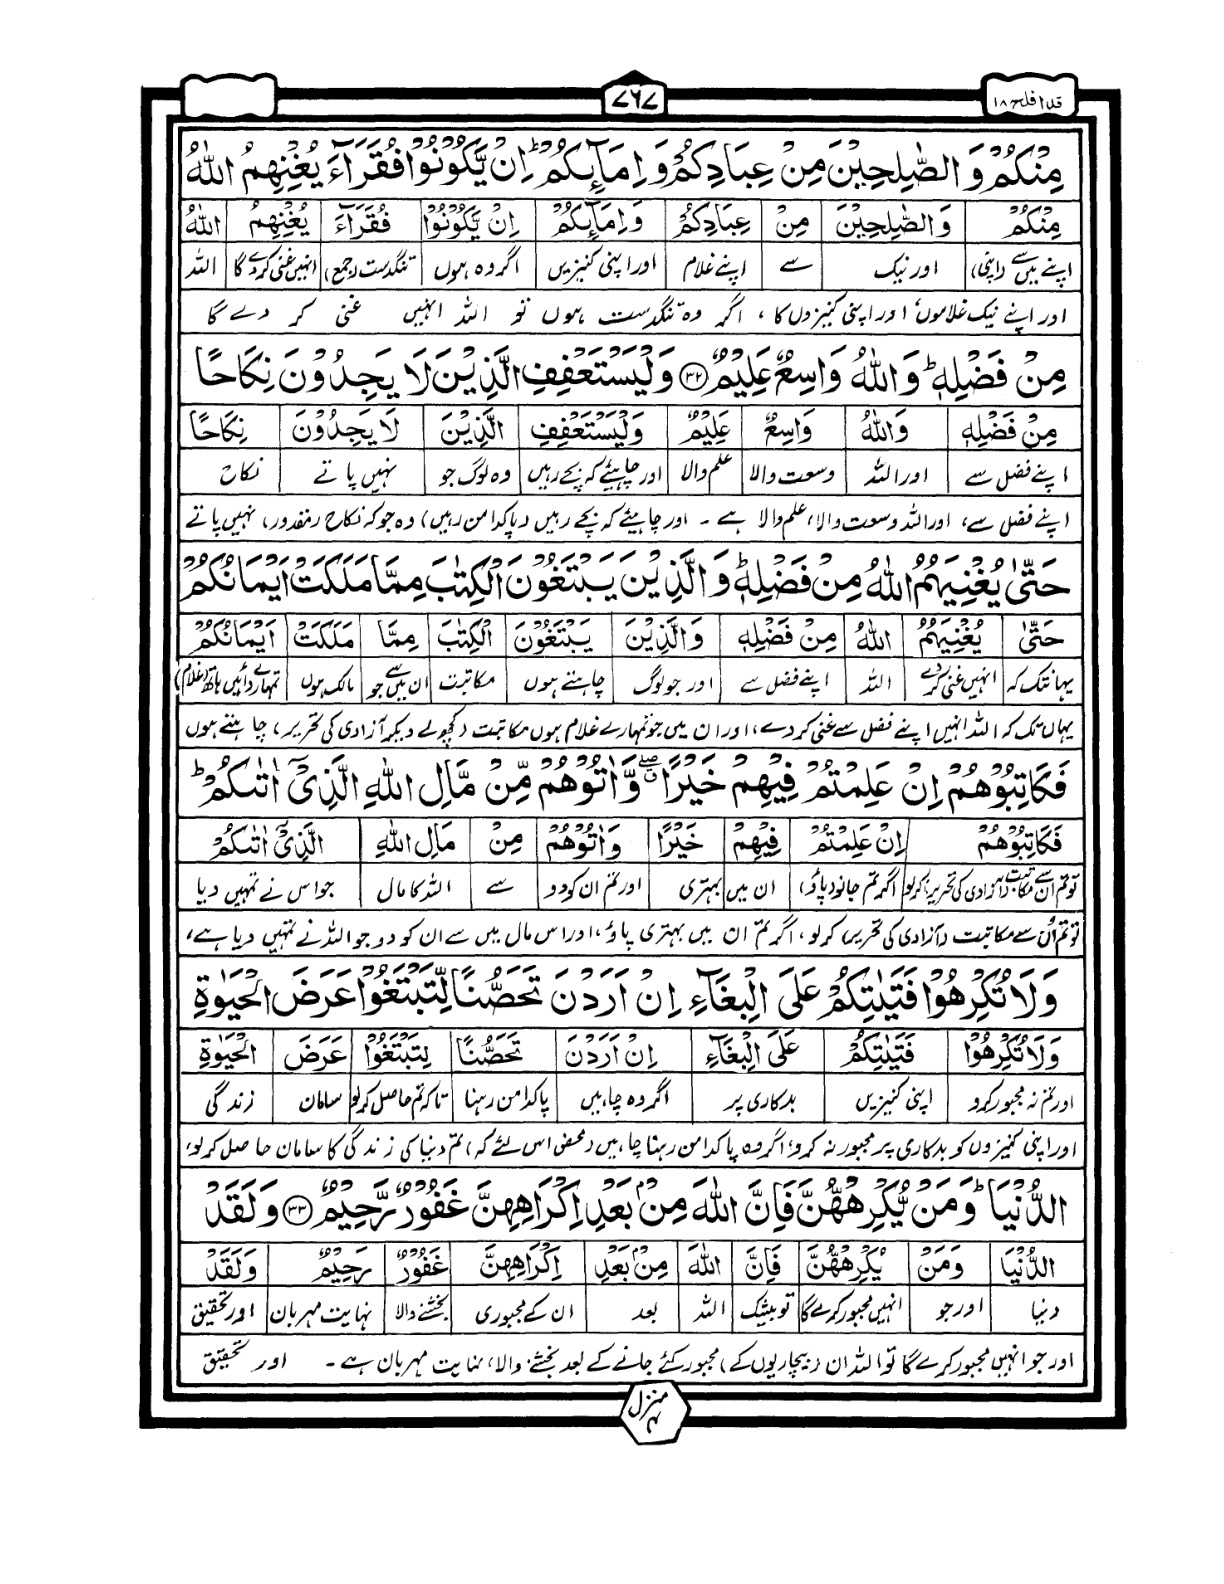 قد افلح ۱۸
۷۶۷
مِنْكُمْ وَالصّٰلِحِيْنَ مِنْ عِبَادِكُمْ وَاِمَآئِكُمْ ؕ اِنْ يَّكُوْنُوْا فُقَرَآءَ يُغْنِهِمُ اللّٰهُ
مِنْكُمْ وَالصّٰلِحِيْنَ مِنْ عِبَادِكُمْ وَاِمَآئِكُمْ اِنْ يَّكُوْنُوْا فُقَرَآءَ يُغْنِهِمُ اللّٰهُ
اپنے میں سے (اپنی) اور نیک سے اپنے غلام اور اپنی کنیزیں اگر وہ ہوں تنگدست (جمع) انہیں غنی کردے گا اللہ
اور اپنے نیک غلاموں، اور اپنی کنیزوں کا، اگر وہ تنگدست ہوں تو اللہ انہیں غنی کر دے گا
مِنْ فَضْلِهٖ ؕ وَاللّٰهُ وَاسِعٌ عَلِيْمٌ ۝۳۲ وَلْيَسْتَعْفِفِ الَّذِيْنَ لَا يَجِدُوْنَ نِكَاحًا
مِنْ فَضْلِهٖ وَاللّٰهُ وَاسِعٌ عَلِيْمٌ وَلْيَسْتَعْفِفِ الَّذِيْنَ لَا يَجِدُوْنَ نِكَاحًا
اپنے فضل سے اور اللہ وسعت والا علم والا اور چاہیئے کہ بچے رہیں وہ لوگ جو نہیں پاتے نکاح
اپنے فضل سے، اور اللہ وسعت والا، علم والا ہے ۔ اور چاہیئے کہ بچے رہیں (پاکدامن رہیں) وہ جو کہ نکاح (مقدور) نہیں پاتے
حَتّٰى يُغْنِيَهُمُ اللّٰهُ مِنْ فَضْلِهٖ ؕ وَالَّذِيْنَ يَبْتَغُوْنَ الْكِتٰبَ مِمَّا مَلَكَتْ اَيْمَانُكُمْ
حَتّٰى يُغْنِيَهُمُ اللّٰهُ مِنْ فَضْلِهٖ وَالَّذِيْنَ يَبْتَغُوْنَ الْكِتٰبَ مِمَّا مَلَكَتْ اَيْمَانُكُمْ
یہانتک کہ انہیں غنی کردے اللہ اپنے فضل سے اور جو لوگ چاہتے ہوں مکاتبت ان میں سے جو مالک ہوں تمہارے دائیں ہاتھ (غلام)
یہاں تک کہ اللہ انہیں اپنے فضل سے غنی کر دے، اور ان میں جو تمہارے غلام ہوں مکاتبت (کچھ لے دیکر آزادی کی تحریر) چاہتے ہوں
فَكَاتِبُوْهُمْ اِنْ عَلِمْتُمْ فِيْهِمْ خَيْرًا ۖ وَّاٰتُوْهُمْ مِّنْ مَّالِ اللّٰهِ الَّذِيْۤ اٰتٰىكُمْ ؕ
فَكَاتِبُوْهُمْ اِنْ عَلِمْتُمْ فِيْهِمْ خَيْرًا وَّاٰتُوْهُمْ مِنْ مَالِ اللّٰهِ الَّذِيْۤ اٰتٰىكُمْ
تو تم ان سے مکاتبت (آزادی کی تحریر) کرلو اگر تم جانو (پاؤ) ان میں بہتری اور تم ان کو دو سے اللہ کا مال جو اس نے تمہیں دیا
تو تم ان سے مکاتبت (آزادی کی تحریر) کر لو، اگر تم ان میں بہتری پاؤ، اور اس مال میں سے ان کو دو جو اللہ نے تمہیں دیا ہے،
وَلَا تُكْرِهُوْا فَتَيٰتِكُمْ عَلَى الْبِغَآءِ اِنْ اَرَدْنَ تَحَصُّنًا لِّتَبْتَغُوْا عَرَضَ الْحَيٰوةِ
وَلَا تُكْرِهُوْا فَتَيٰتِكُمْ عَلَى الْبِغَآءِ اِنْ اَرَدْنَ تَحَصُّنًا لِتَبْتَغُوْا عَرَضَ الْحَيٰوةِ
اور تم نہ مجبور کرو اپنی کنیزیں بدکاری پر اگر وہ چاہیں پاکدامن رہنا تاکہ تم حاصل کرلو سامان زندگی
اور اپنی کنیزوں کو بدکاری پر مجبور نہ کرو، اگر وہ پاکدامن رہنا چاہیں (محض اس لئے کہ) تم دنیا کی زندگی کا سامان حاصل کر لو،
الدُّنْيَا ؕ وَمَنْ يُّكْرِهْهُّنَّ فَاِنَّ اللّٰهَ مِنْۢ بَعْدِ اِكْرَاهِهِنَّ غَفُوْرٌ رَّحِيْمٌ ۝۳۳ وَلَقَدْ
الدُّنْيَا وَمَنْ يُّكْرِهْهُّنَّ فَاِنَّ اللّٰهَ مِنْۢ بَعْدِ اِكْرَاهِهِنَّ غَفُوْرٌ رَحِيْمٌ وَلَقَدْ
دنیا اور جو انہیں مجبور کرے گا تو بیشک اللہ بعد ان کے مجبوری بخشنے والا نہایت مہربان اور تحقیق
اور جو انہیں مجبور کرے گا تو اللہ ان (بیچاریوں کے) مجبور کئے جانے کے بعد بخشنے والا، نہایت مہربان ہے ۔ اور تحقیق
منزل ۴